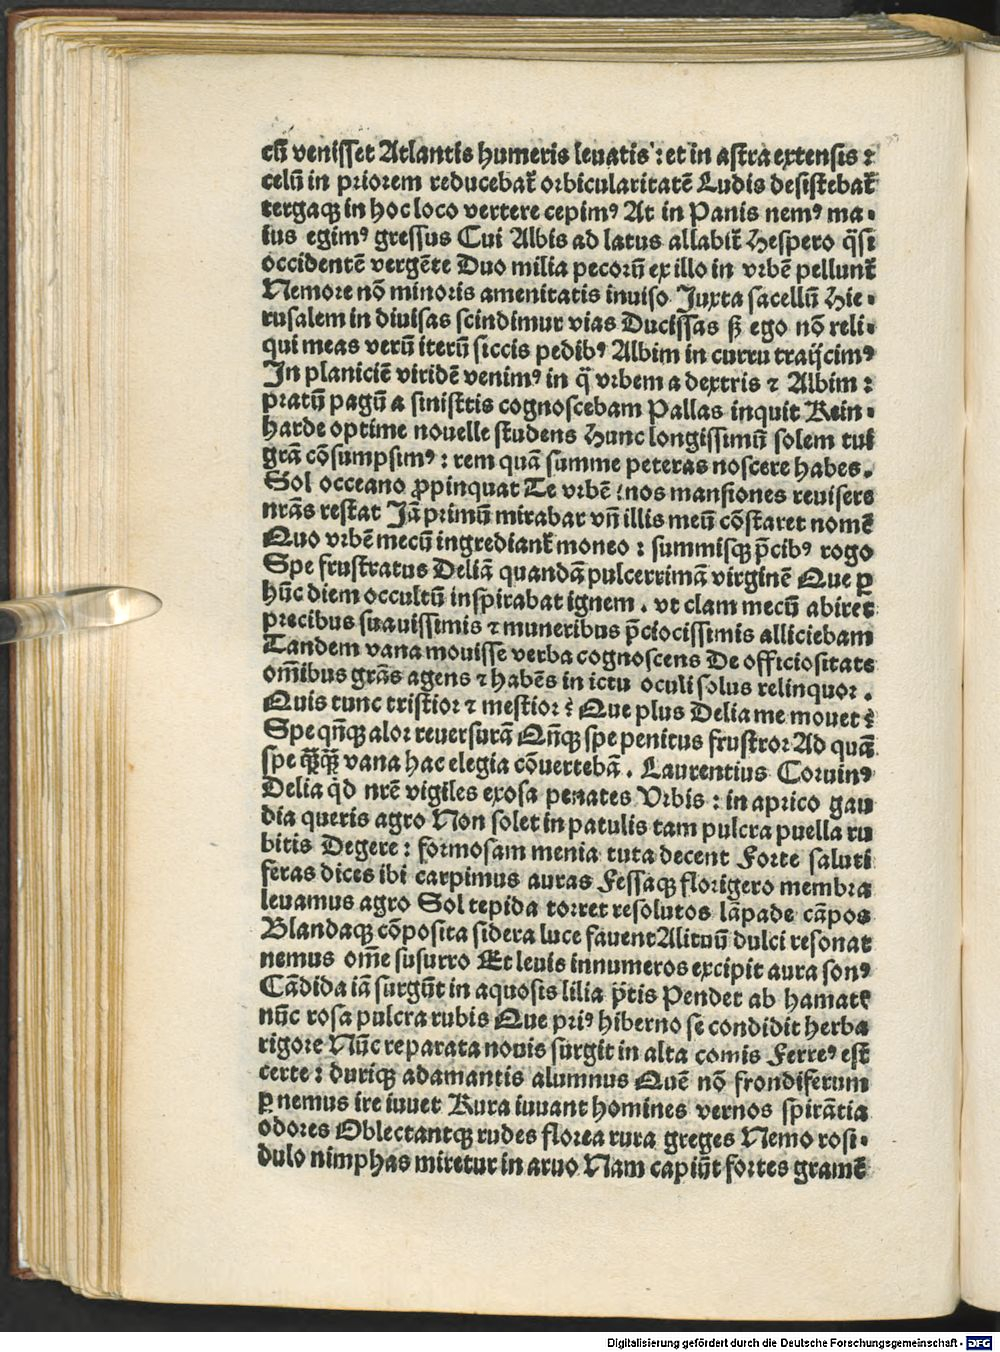 cū venisset Atlantis humeris leuatis : et in astra extensis :
celū in priorem reducebat᷑ orbicularitatē Ludis desistebat᷑
tergaqꝫ in hoc loco vertere cepimꝰ At in Panis nemꝰ ma⸗
ius egimꝰ gressus Cui Albis ad latus allabit᷑ Hespero q̄si
occidentē vergēte Duo milia pecorū ex illo in vrbē pellunt᷑
Nemore nō minoris amenitatis inuiso Juxta sacellū Hie⸗
rusalem in diuisas scindimur vias Ducissas sꝫ ego nō reli⸗
qui meas verū iterū siccis pedibꝰ Albim in curru traijcimꝰ
In planiciē viridē venimꝰ in q̄ vrbem a dextris ⁊ Albim :
pratū pagū a sinisttis cognoscebam Pallas inquit Rein⸗
harde optime nouelle studens Hunc longissimū solem tui
grā cōsumpsimꝰ : rem quā summe peteras noscere habes.
Sol occeano ꝓpinquat Te vrbē : nos mansiones reuisere
nrās restat Jā primū mirabar vn̄ illis meū cōstaret nomē
Quo vrbē mecū ingrediant᷑ moneo : summisqꝫ p̄cibꝰ rogo
Spe frustratus Deliā quandā pulcerrimā virginē Que ꝑ
hūc diem occultū inspirabat ignem . vt clam mecū abiret
precibus suauissimis ⁊ muneribus p̄ciocissimis alliciebam
Tandem vana mouisse verba cognoscens De officiositate
om̄ibus grās agens ⁊ habēs in ictu oculi solus relinquor .
Quis tunc tristior ⁊ mestior ? Que plus Delia me mouet ?
Spe qn̄qꝫ alor reuersurā Qn̄qꝫ spe penitus frustror Ad quā
spe q̄q̄ vana hac elegia cōuertebā . Laurentius Coruinꝰ
Delia q̄d nrē vigiles exosa penates Vrbis : in aprico gau
dia queris agro Non solet in patulis tam pulcra puella ru
bitis Degere : formosam menia tuta decent Forte saluti
feras dices ibi carpimus auras Fessaqꝫ florigero membra
leuamus agro Sol tepida torret resolutos lāpade cāpos
Blandaqꝫ cōposita sidera luce fauent Alituū dulci resonat
nemus om̄e susurro Et leuis innumeros excipit aura sonꝰ
Cādida iā surgūt in aquosis lilia p̄tis Pendet ab hamate
nūc rosa pulcra rubis Que priꝰ hiberno se condidit herba
rigore Nūc reparata nouis surgit in alta comis Ferreꝰ est
certe : duriqꝫ adamantis alumnus Quē nō frondiferum
ꝑ nemus ire iuuet Rura iuuant homines vernos spirātia
odores Oblectantqꝫ rudes florea rura greges Nemo rosi⸗
dulo nimphas miretur in aruo Nam capiūt fortes gramē
Digitalisierung gefördert durch die Deutsche Forschungsgemeinschaft - DFG